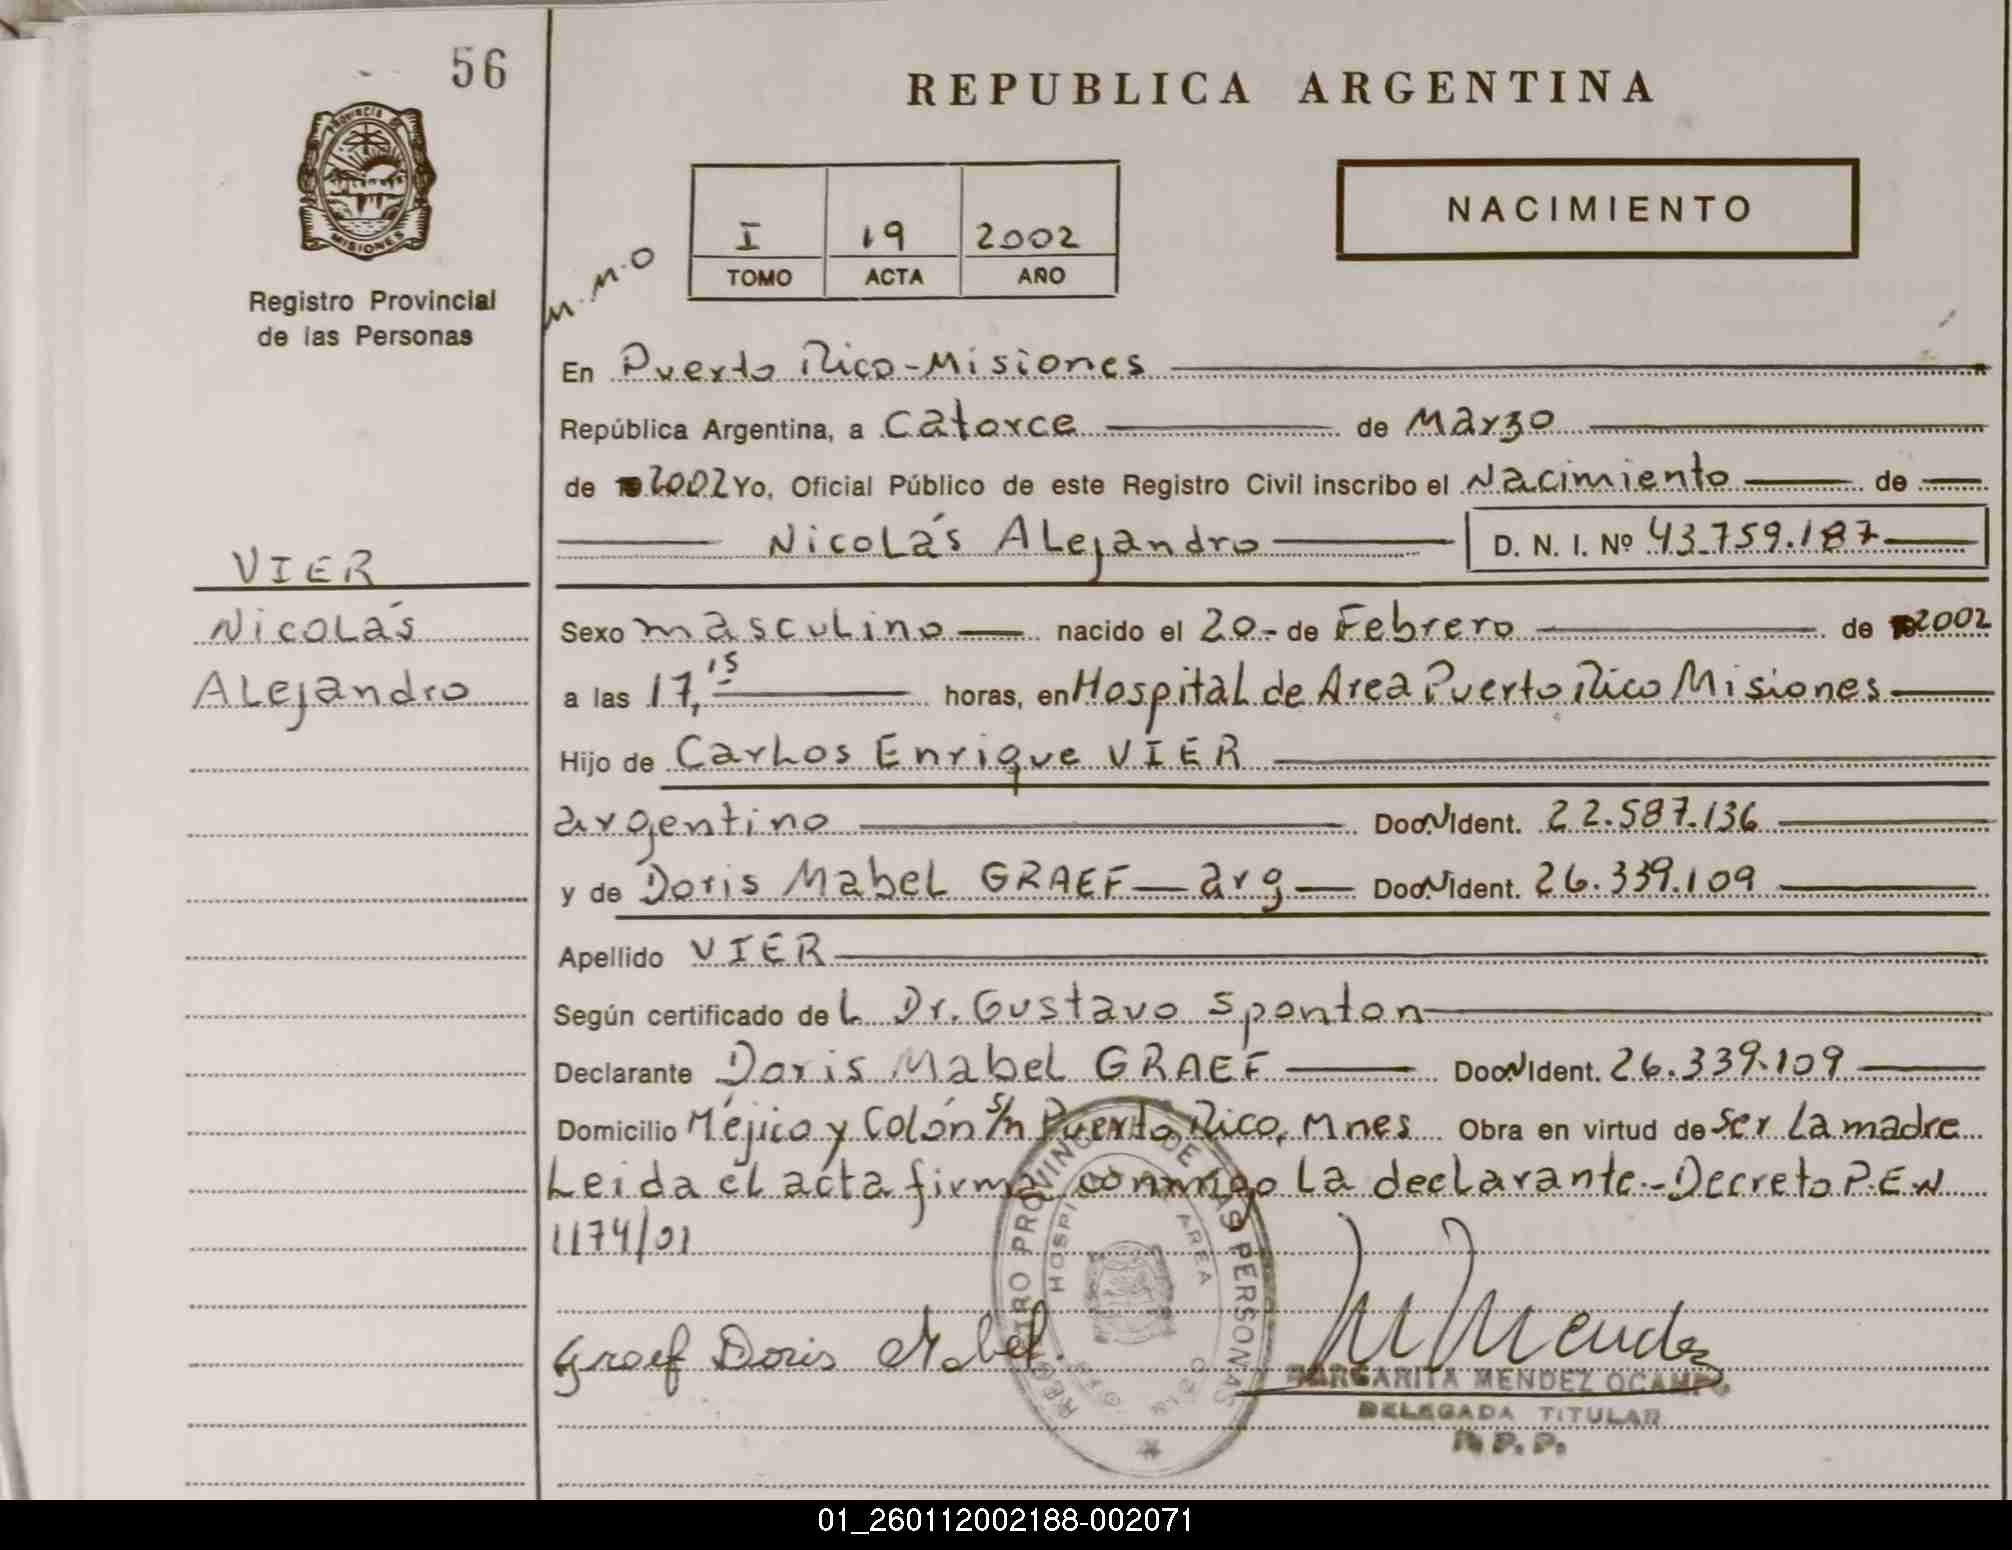 56
PROVINCIA DE
MISIONES
Registro Provincial
de las Personas
VIER
Nicolás
Alejandro
REPUBLICA ARGENTINA
I 19 2002
TOMO ACTA AÑO
NACIMIENTO
M.M.O
En Puerto Rico-Misiones
República Argentina, a catorce de Marzo
de 2002 Yo, Oficial Público de este Registro Civil inscribo el Nacimiento de
Nicolás Alejandro D. N. I. Nº 43.759.187
Sexo masculino nacido el 20- de Febrero de 2002
a las 17,15 horas, en Hospital de Area Puerto Rico Misiones
Hijo de Carlos Enrique VIER
argentino Doc. N Ident. 22.587.136
y de Doris Mabel GRAEF - arg - Doc. N Ident. 26.339.109
Apellido VIER
Según certificado de L Dr. Gustavo Sponton
Declarante Doris Mabel GRAEF Doc. N Ident. 26.339.109
Domicilio Méjico y Colón s/n Puerto Rico, Mnes Obra en virtud de ser la madre
Leida el acta firma conmigo la declarante.-Decreto P.E.N
1174/01
Graef Doris Mabel.
M Mendez
REGISTRO PROVINCIAL DE LAS PERSONAS
HOSPITAL AREA
MARGARITA MENDEZ OCAMPO
DELEGADA TITULAR
R.P.P.
01_260112002188-002071